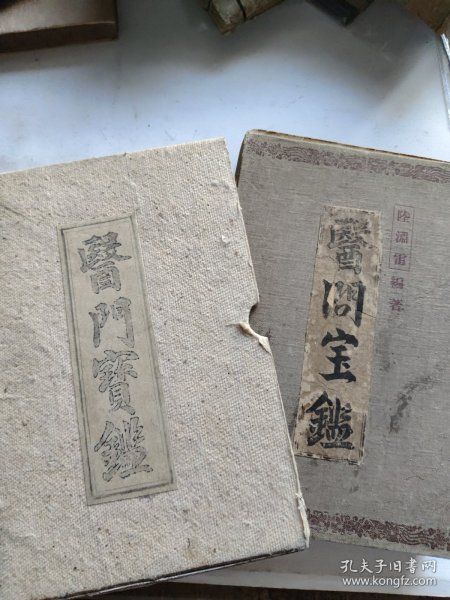 醫門寶鑑
醫门宝鑑
陸淵雷編著
孔夫子旧书网
www.kongfz.com